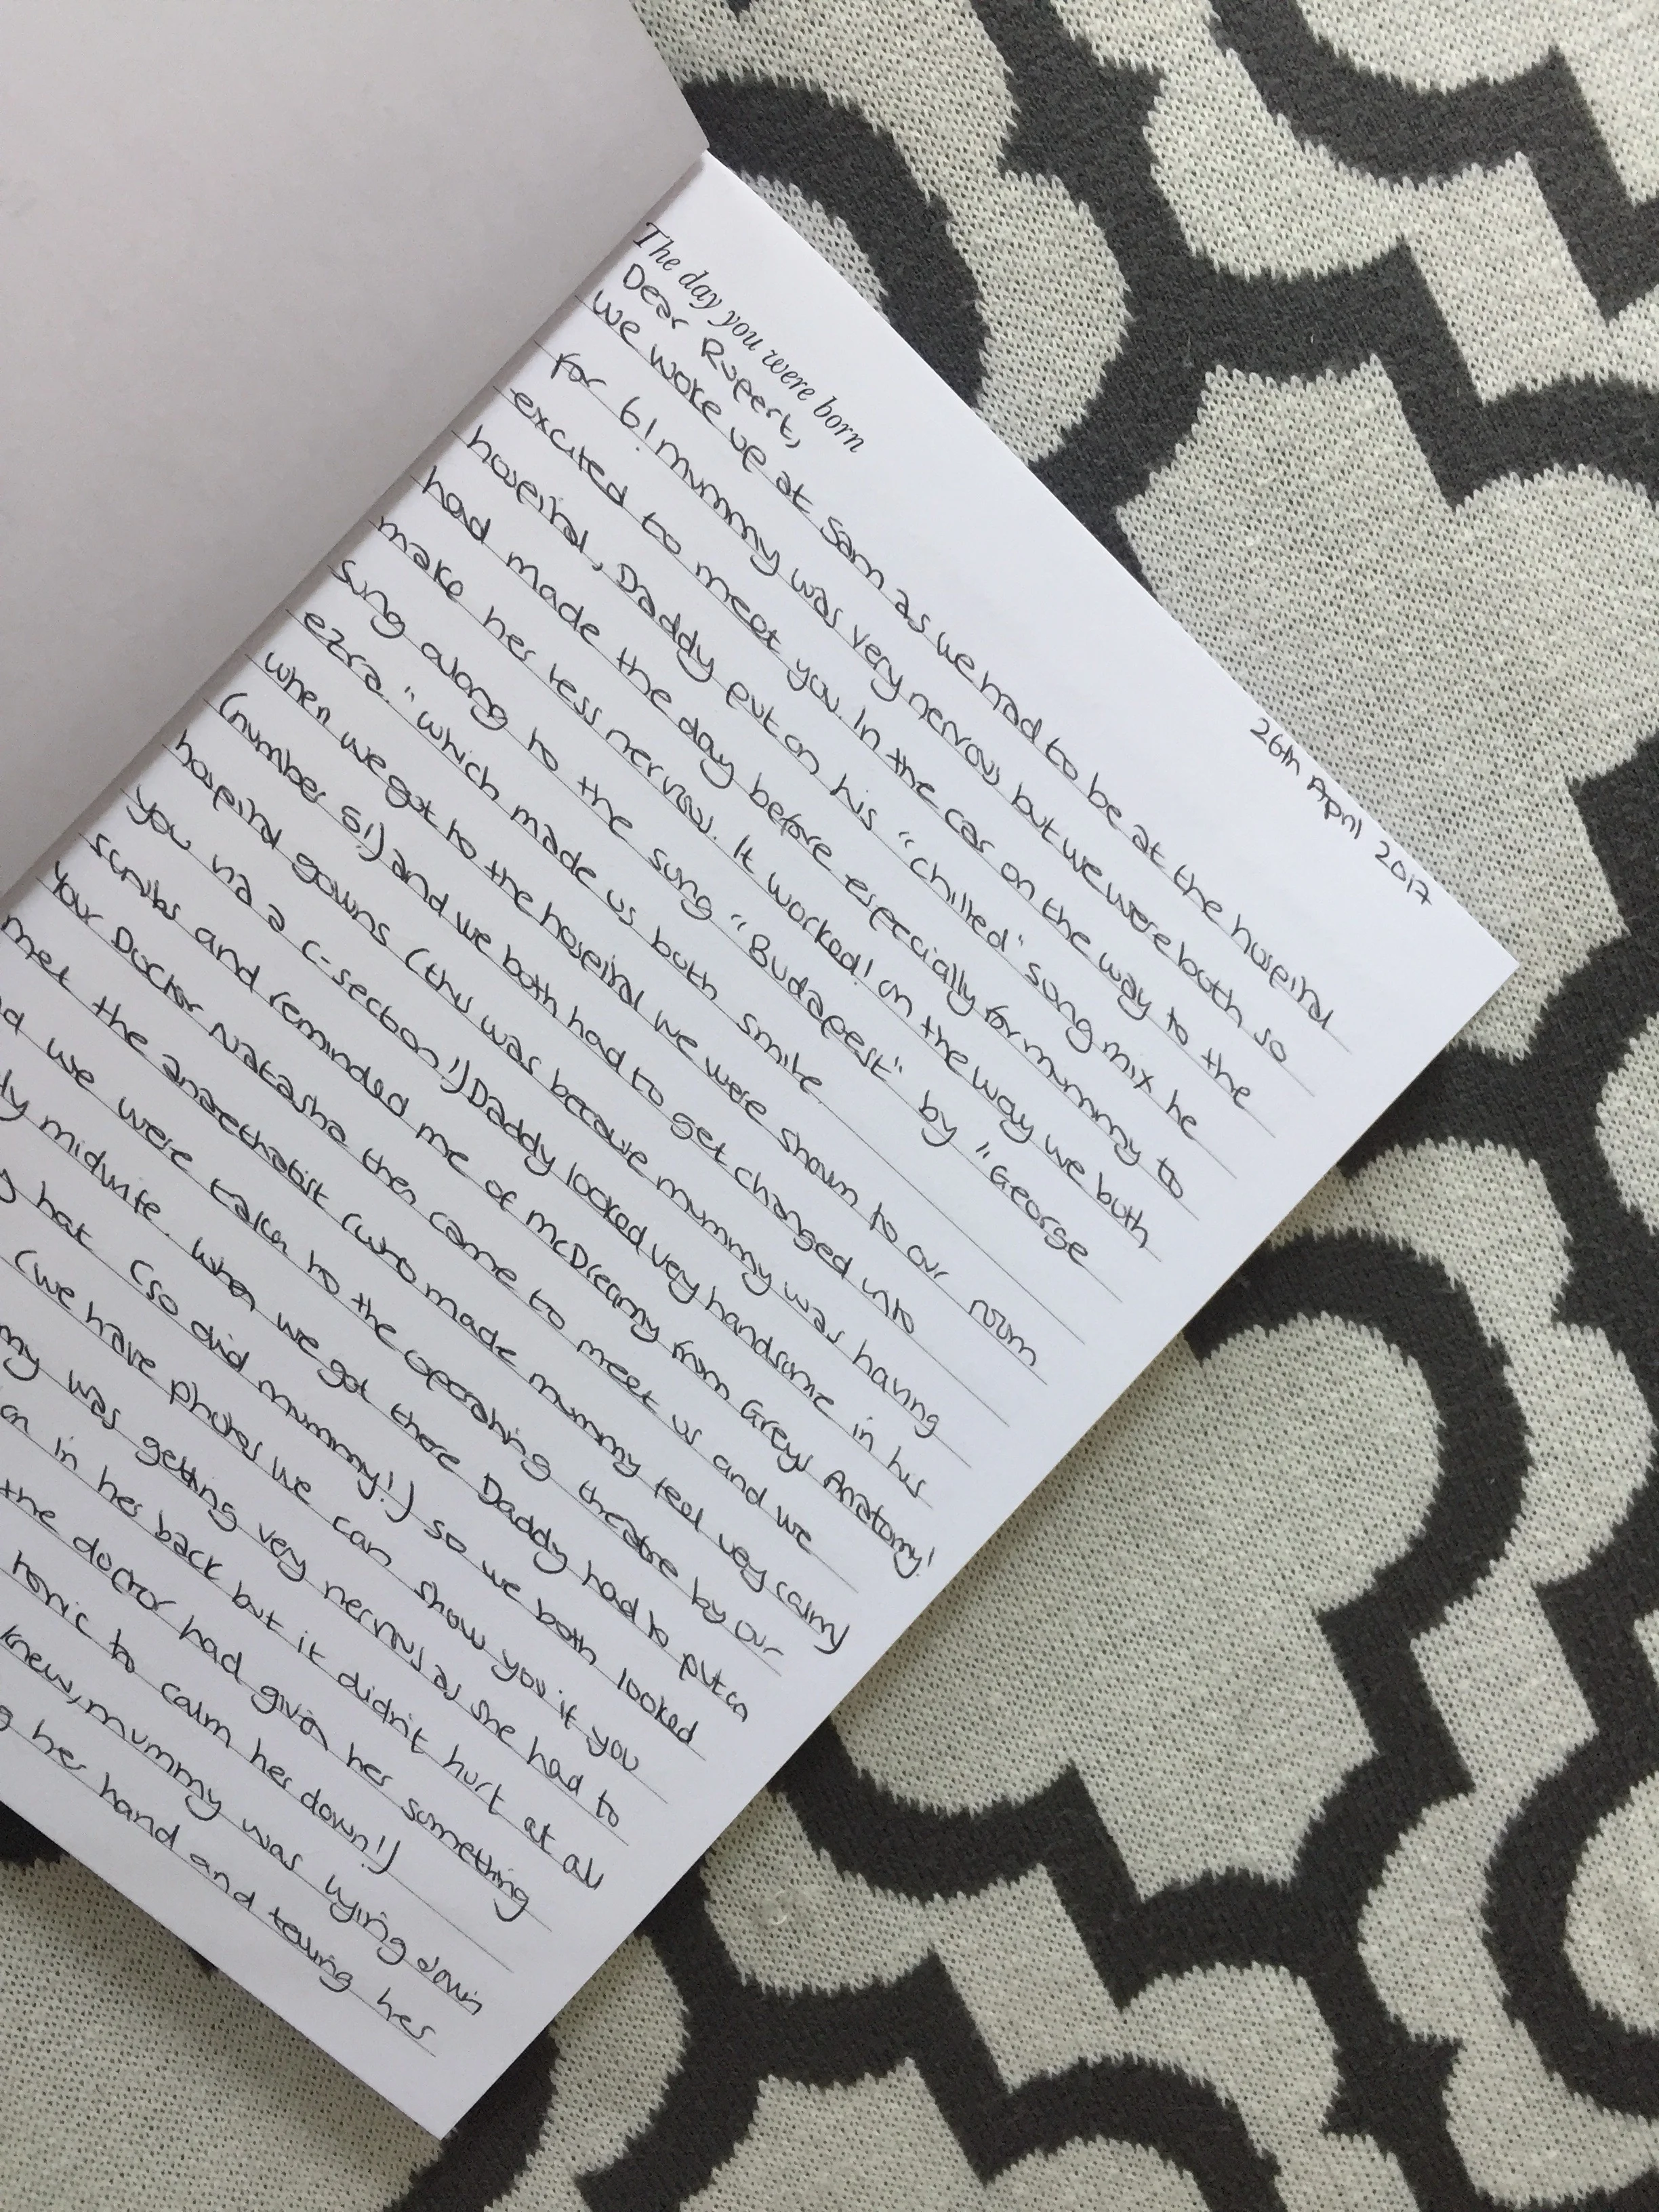 The day you were born
26th April 2017
Dear Rupert,
We woke up at 5am as we had to be at the hospital
for 6! Mummy was very nervous but we were both so
excited to meet you. In the car on the way to the
hospital, Daddy put on his "chilled" song mix he
had made the day before especially for mummy to
make her less nervous. It worked! On the way we both
sung along to the song "Budapest" by "George
ezra." which made us both smile.
When we got to the hospital we were shown to our room
(number 5!) and we both had to get changed into
hospital gowns (this was because mummy was having
you via a C-section!) Daddy looked very handsome in his
scrubs and reminded me of McDreamy from Greys Anatomy!
Your Doctor Natasha then came to meet us and we
met the anaethatist (who made mummy feel very calm)
we were taken to the operating theatre by our
midwife. When we got there Daddy had to put on
hat (so did mummy!) so we both looked
(we have photos we can show you if you
was getting very nervous as she had to
in her back but it didn't hurt at all
the doctor had given her something
tonic to calm her down!)
knew, mummy was lying down
her hand and telling her